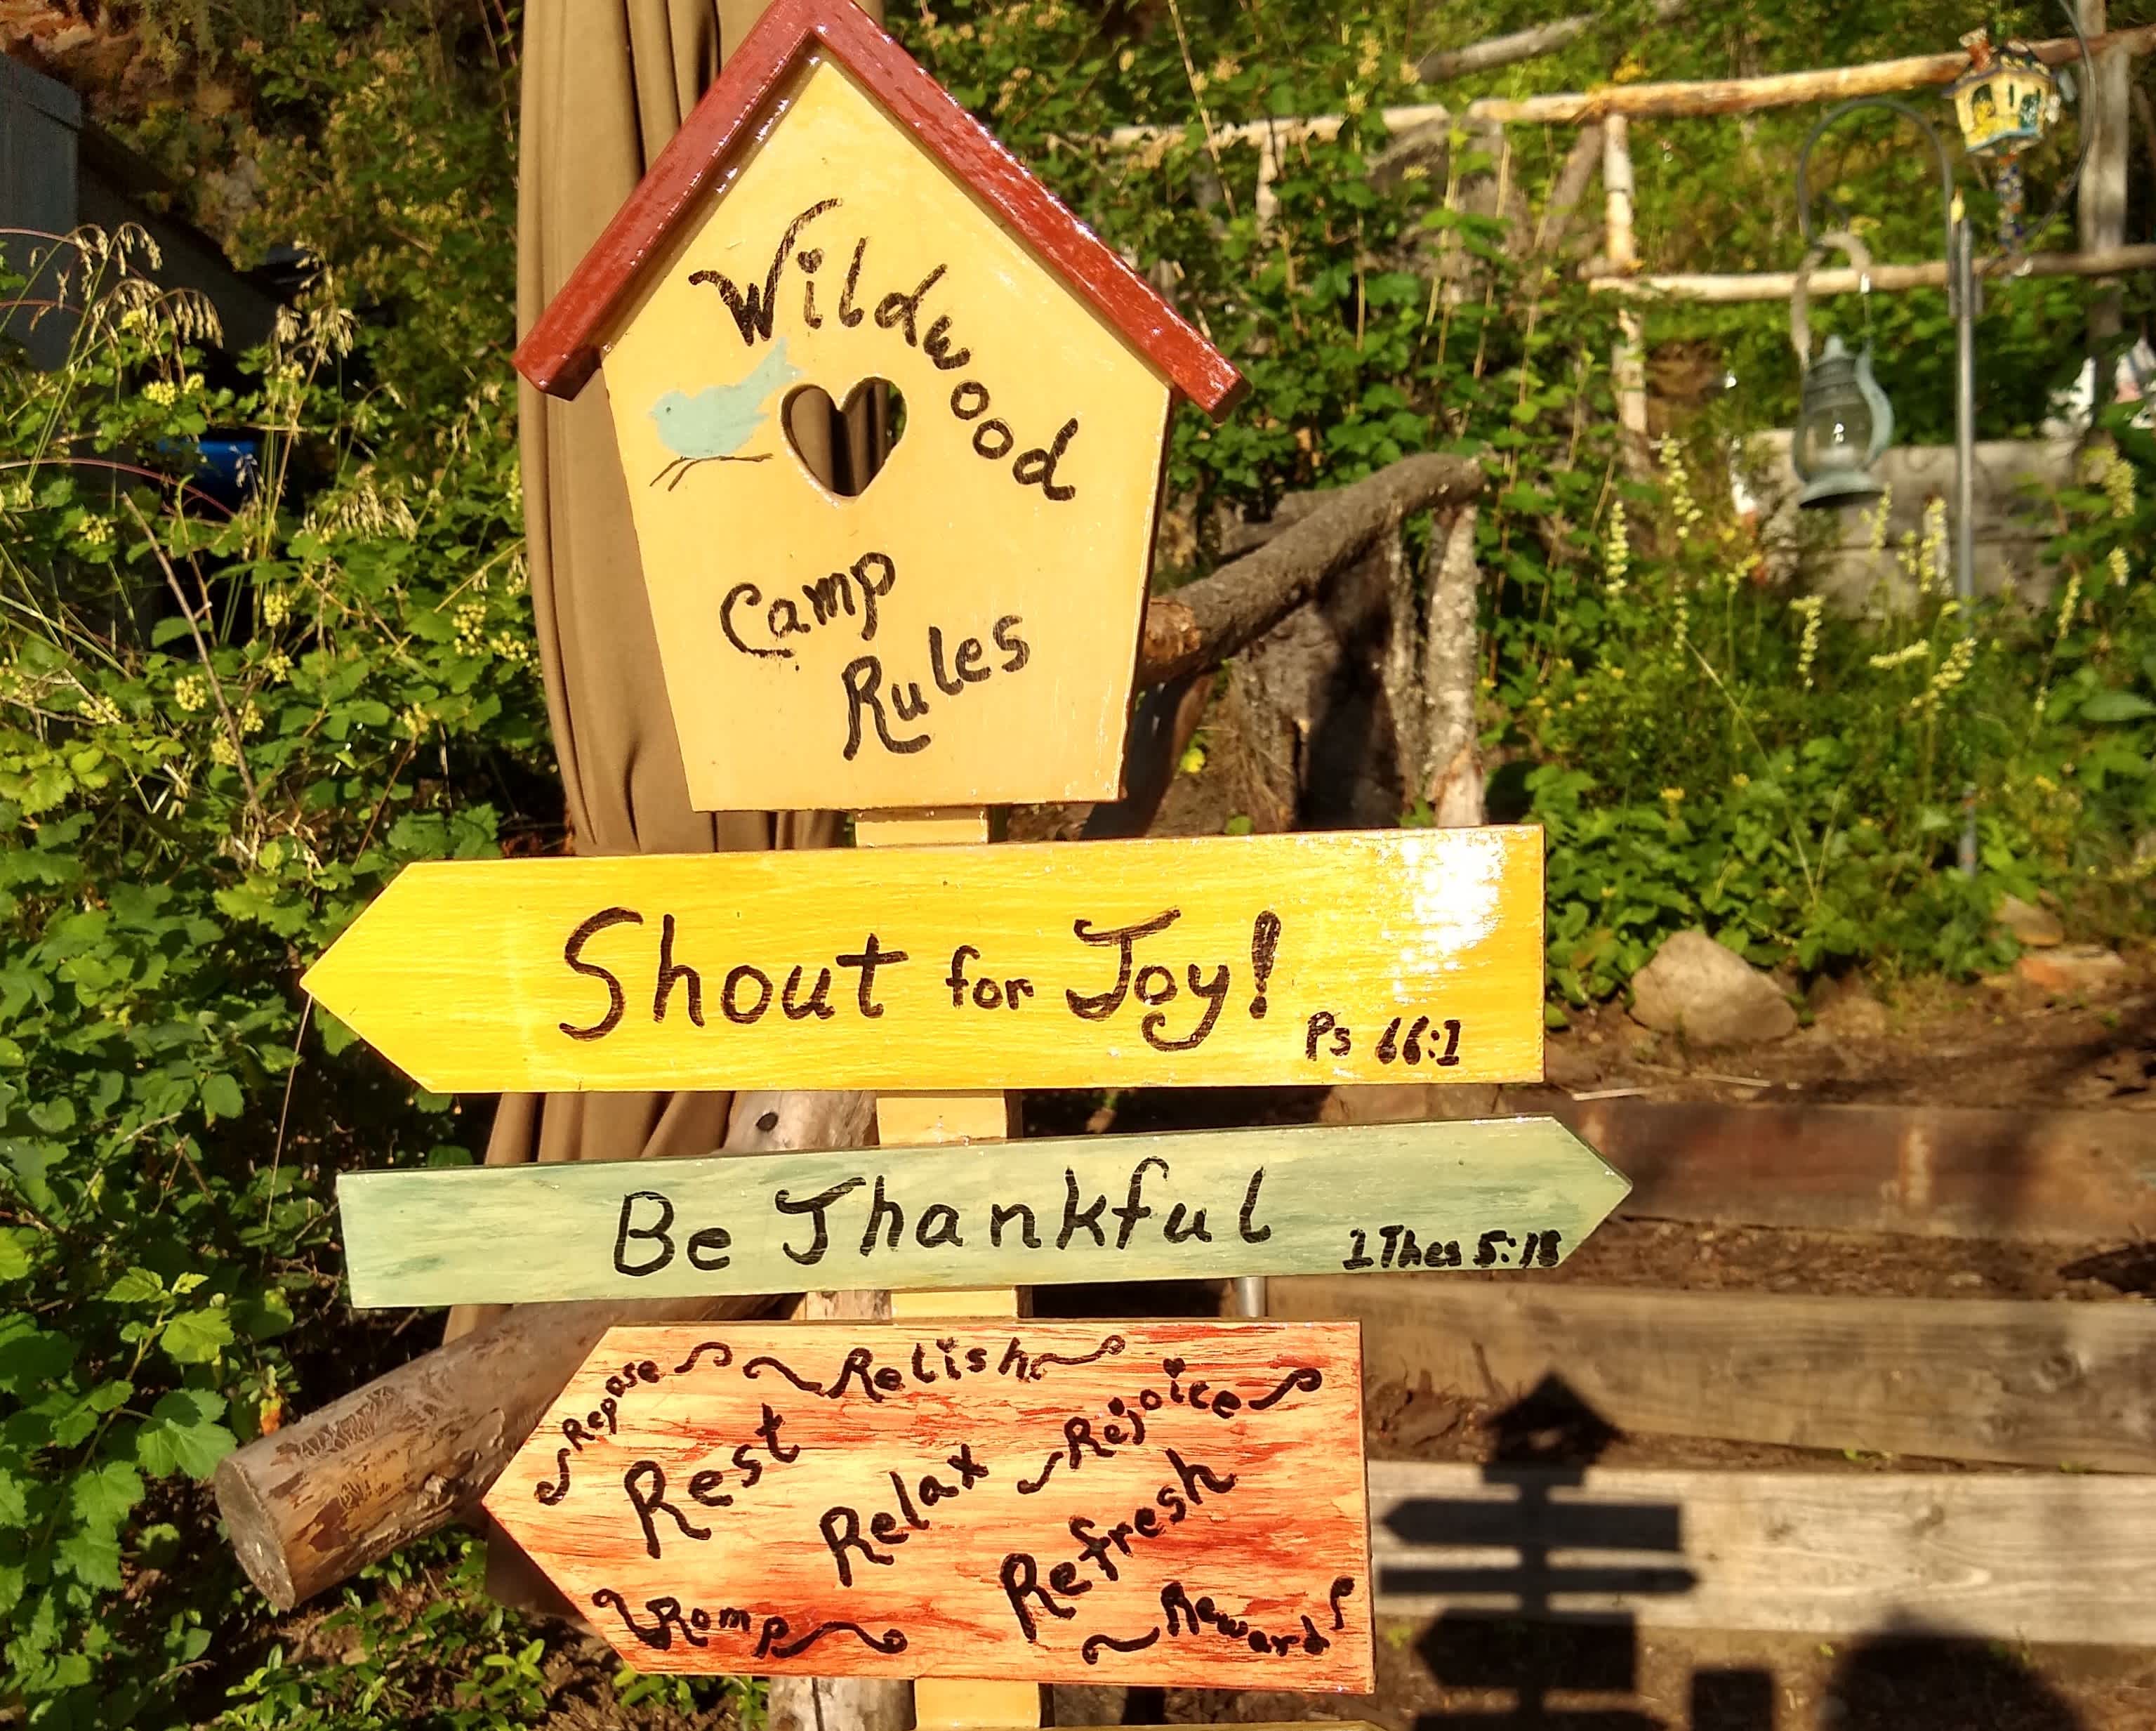 Wildwood
Camp
Rules
Shout for Joy!
Ps 66:1
Be Thankful
1 Thes 5:18
Repose
Relish
Rejoice
Rest
Relax
Refresh
Romp
Reward